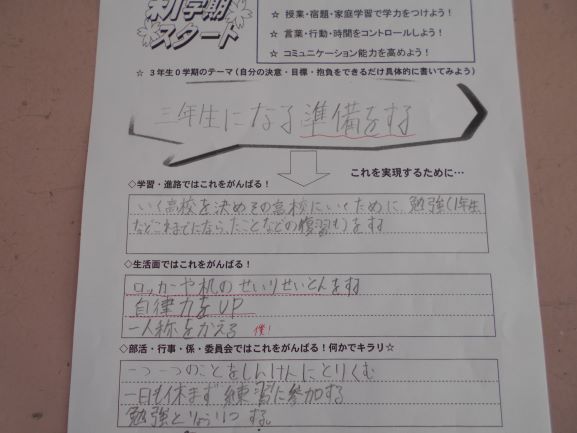 新学期
スタート
☆ 授業・宿題・家庭学習で学力をつけよう！
☆ 言葉・行動・時間をコントロールしよう！
☆ コミュニケーション能力を高めよう！
☆ ３年生０学期のテーマ（自分の決意・目標・抱負をできるだけ具体的に書いてみよう）
三年生になる準備をする
これを実現するために…
◇学習・進路ではこれをがんばる！
いく高校を決めその高校にいくために、勉強（1年生
などこれまでにならったことなどの復習も）をする
◇生活面ではこれをがんばる！
ロッカーや机のせいりせいとんをする
自律力をUP
一人称をかえる 僕！
◇部活・行事・係・委員会ではこれをがんばる！何かでキラリ☆
一つ一つのことをしんけんにとりくむ
一日も休まず練習に参加する
勉強とりょうりつする。